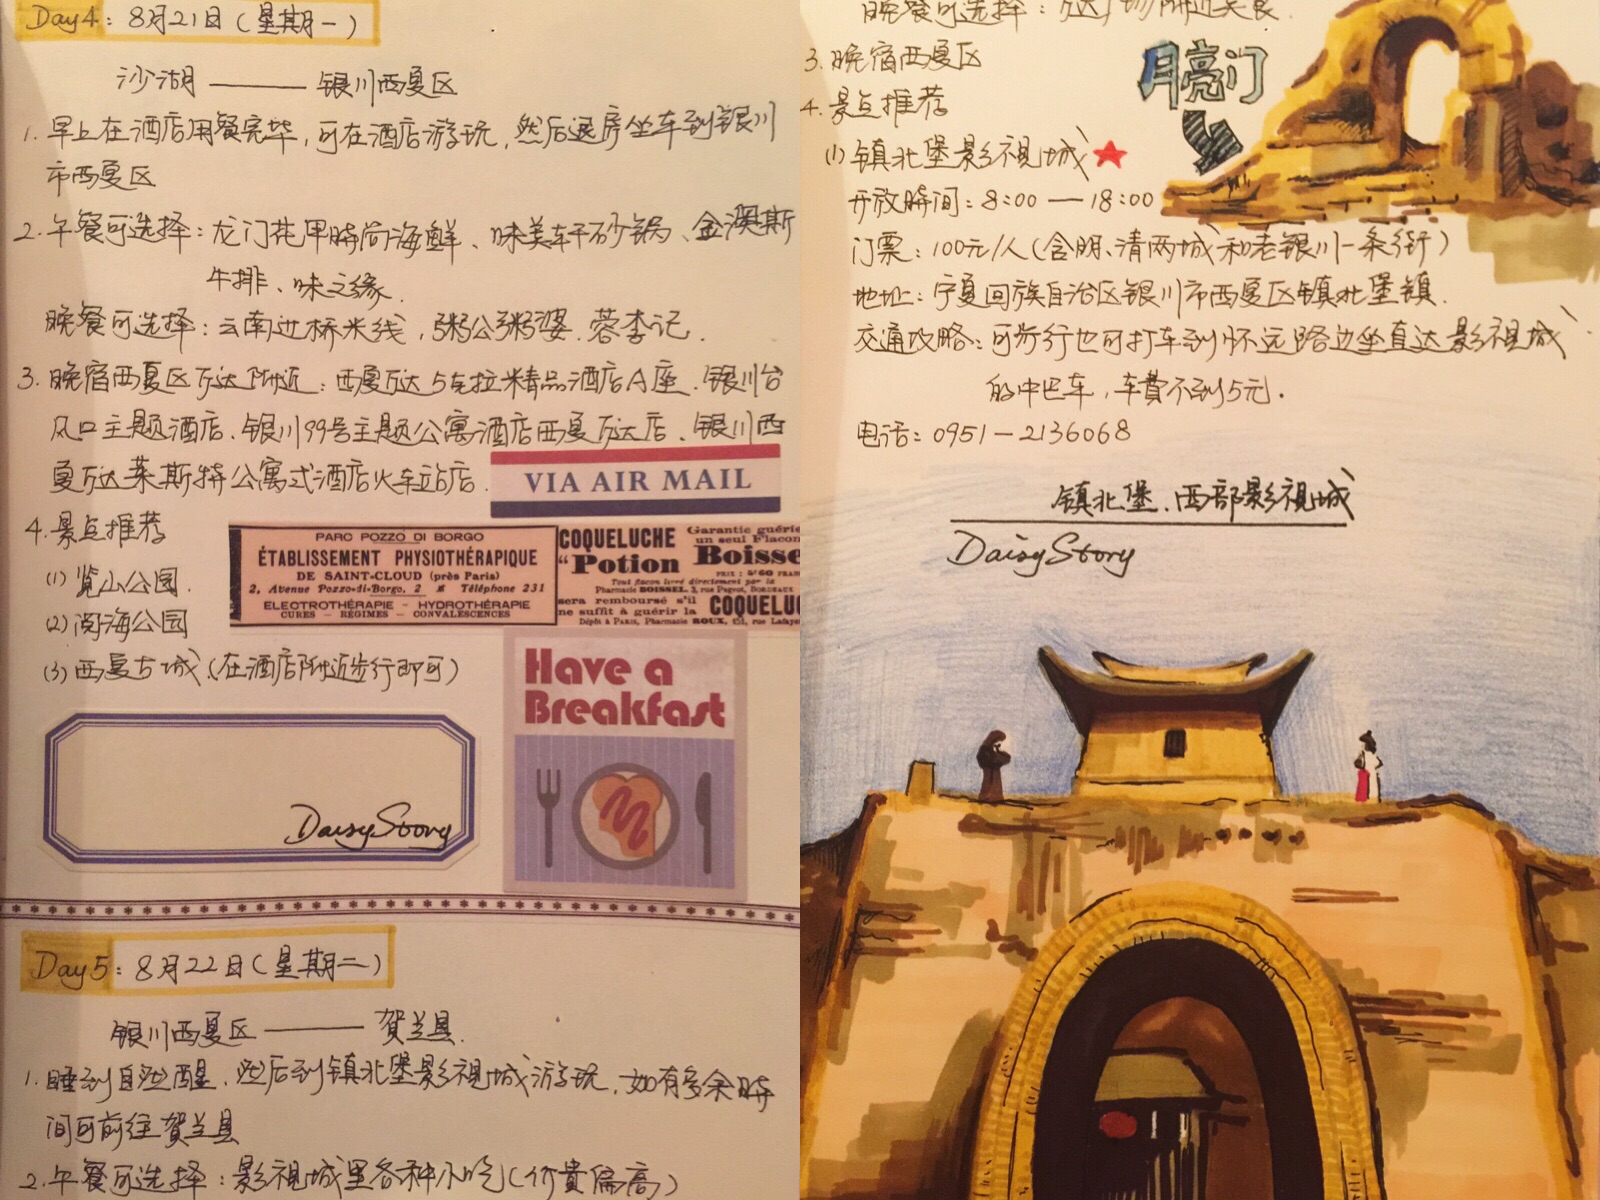 Day4: 8月21日(星期一)
沙湖 —— 银川西夏区
1. 早上在酒店用餐完毕,可在酒店游玩,然后退房坐车到银川
市西夏区
2. 午餐可选择:龙门花甲时尚海鲜、味美轩砂锅、金澳斯
牛排、味之缘.
晚餐可选择:云南过桥米线,粥公粥婆.蓉李记.
3. 晚宿西夏区万达附近:西夏万达5克拉精品酒店A座.银川台
风口主题酒店.银川99号主题公寓酒店西夏万达店.银川西
夏万达莱斯特公寓式酒店火车站店.
VIA AIR MAIL
4. 景点推荐
(1) 览山公园.
(2) 阅海公园
(3) 西夏古城(在酒店附近步行即可)
PARC POZZO DI BORGO
ÉTABLISSEMENT PHYSIOTHÉRAPIQUE
DE SAINT-CLOUD (près Paris)
2, Avenue Pozzo-di-Borgo, 2 Téléphone 231
ELECTROTHÉRAPIE - HYDROTHÉRAPIE
CURES - RÉGIMES - CONVALESCENCES
COQUELUCHE
"Potion
Garantie guérie
un seul Flacon
Boisse
Tout flacon livré directement par la
Pharmacie BOISSEL, 3, rue Pugnet, BORDEAUX
sera remboursé s'il
ne suffit à guérir la
COQUELUC
Dépôt à PARIS, Pharmacie ROUX, 151, rue Lafaye
Have a
Breakfast
DaisyStory
Day5: 8月22日(星期二)
银川西夏区 —— 贺兰县.
1. 睡到自然醒.然后到镇北堡影视城游玩.如有多余时
间可前往贺兰县
2. 午餐可选择:影视城里各种小吃(价贵偏高)
晚餐可选择:万达广场附近美食.
3. 晚宿西夏区
4. 景点推荐
月亮门
(1) 镇北堡影视城
开放时间:8:00 — 18:00
门票:100元/人(含明、清两城和老银川一条街)
地址:宁夏回族自治区银川市西夏区镇北堡镇.
交通攻略:可步行也可打车到怀远路边坐直达影视城
的中巴车,车费不到5元.
电话:0951-2136068
镇北堡.西部影视城
DaisyStory